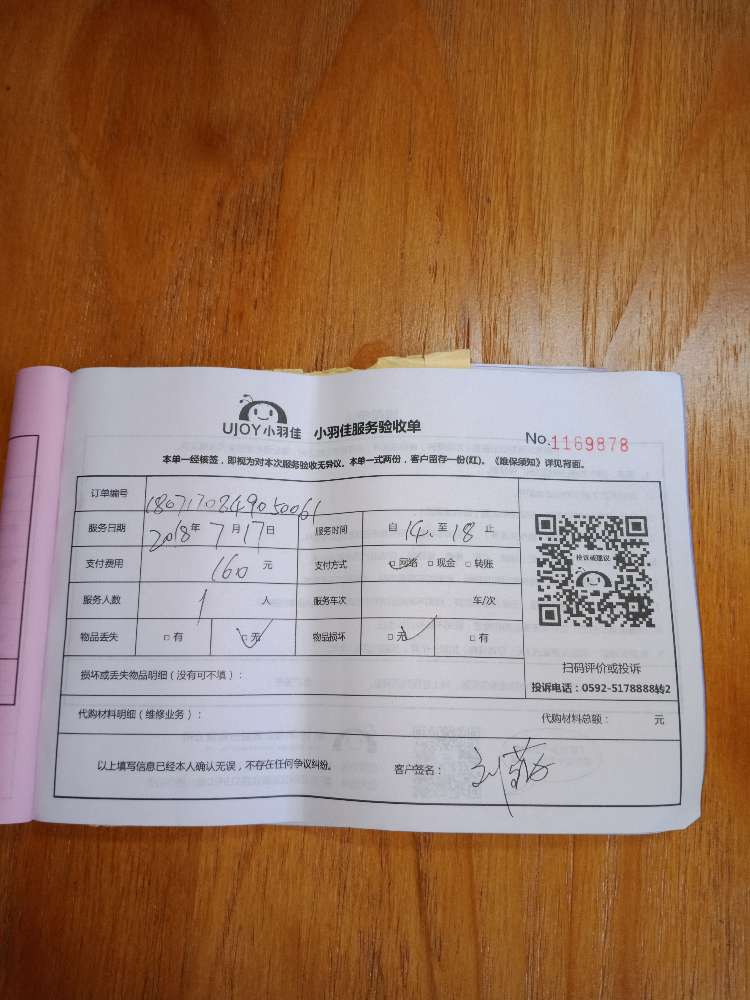 UJOY小羽佳 小羽佳服务验收单 No.1169878
本单一经核签，即视为对本次服务验收无异议。本单一式两份，客户留存一份(红)。《维保须知》详见背面。
订单编号 1807170849050061
服务日期 2018年7月17日 服务时间 自14.至18止
支付费用 160元 支付方式 □网络 □现金 □转账
服务人数 1人 服务车次 车/次
物品丢失 □有 □无 物品损坏 □无 □有
投诉或建议
扫码评价或投诉
投诉电话：0592-5178888转2
损坏或丢失物品明细（没有可不填）：
代购材料明细（维修业务）： 代购材料总额： 元
以上填写信息已经本人确认无误，不存在任何争议纠纷。 客户签名：